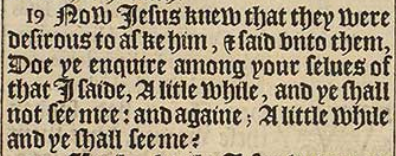 19 Now Jesus knew that they were
desirous to aske him, & said vnto them,
Doe ye enquire among your selues of
that I saide, A litle while, and ye shall
not see mee: and againe; A little while
and ye shall see me?